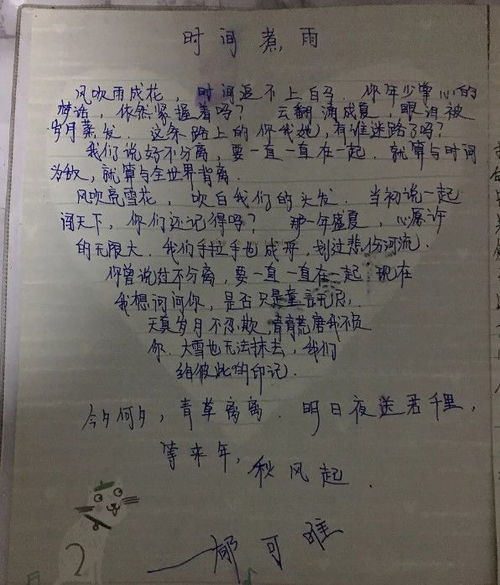 时间煮雨
风吹雨成花，时间追不上白马．你年少掌心的
梦话，依然紧握着吗？云翻涌成夏，眼泪被
岁月蒸发．这条路上的你我她，有谁迷路了吗？
我们说好不分离，要一直一直在一起．就算与时间
为敌，就算与全世界背离．
风吹亮雪花，吹白我们的头发．当初说一起
闯天下，你们还记得吗？那一年盛夏，心愿许
的无限大．我们手拉手也成舟，划过悲伤河流．
你曾说过不分离，要一直一直在一起．现在
我想问问你，是否只是童言无忌．
天真岁月不忍欺，青春荒唐我不负
你．大雪也无法抹去，我们
给彼此的印记．
今夕何夕，青草离离．明月夜送君千里，
等来年，秋风起．
——郁可唯
2